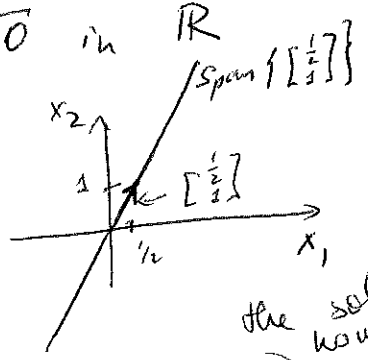 0 in ℝ
Span {[½ 1]}
x₂
1
[½ 1]
½
x₁
the sol
hom